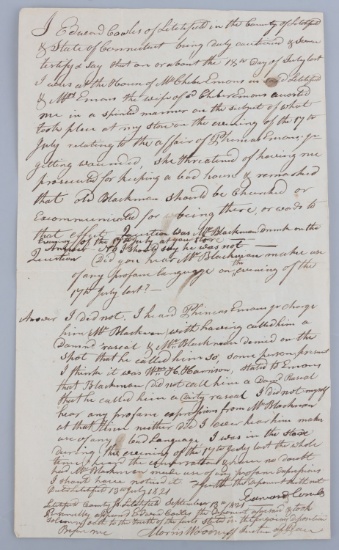 I Edward Cowles of Litchfield in the County of Litchfield
& State of Connecticut being duly cautioned & Sworn
certify & say that on or about the 18th Day of July last
I was at the House of Mr Emans in sd Litchfield
& Mrs Emans the wife of sd Emans accosted
me in a spirited manner on the subject of what
took place at my store in the evening of the 17th
July relating to the affair of Phineas Emans Jr
getting wounded, she threatened of having me
prosecuted for keeping a bad house & remarked
that old Blackman should be Churched or
Excommunicated for being there, or words to
that effect Question was Mr Blackman drunk on the
evening of the 17th July at your store
Answer I should say he was not
Question Did you hear Mr Blackman make use
of any Profane language on the evening of the
17th July last?
Answer I did not. I heard Phineas Emans Jr charge
him Mr Blackman with having called him a
damnd rascal & Mr Blackman denied on the
spot that he called him so, some person present
I think it was Wm H. Harrison, stated to Emans
that Blackman did not call him a Damd Rascal
that he called him a rascal I did not myself
hear any profane expression from Mr Blackman
at that time neither did I ever hear him make
use of any bad Language I was in the store
during the evening of the 17th July last the whole
time
had Mr Blackman make use of any profane expressions
I should have noticed it
Litchfield September 13th 1821
Edward Cowles
Personally appeared Edward Cowles the Deponent & took
Before me Morris Woodruff Justice of Peace